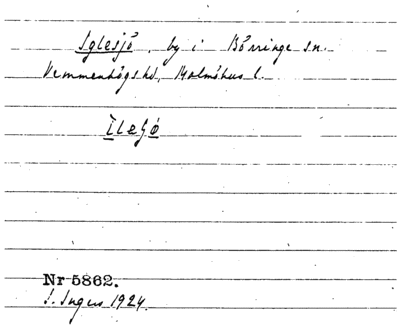 Iglesjö, by i Börringe sn.
Vemmenhögs hd, Malmöhus l.
Nr 5862.
S. Ingers 1924.